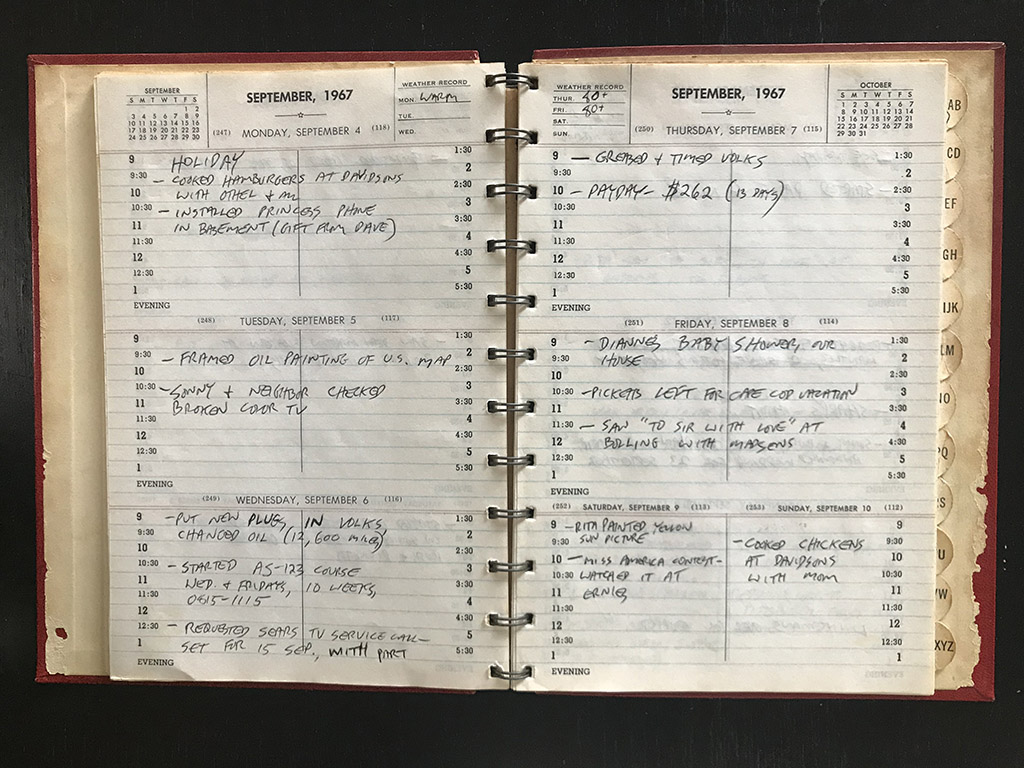 SEPTEMBER
S M T W T F S
1 2
3 4 5 6 7 8 9
10 11 12 13 14 15 16
17 18 19 20 21 22 23
24 25 26 27 28 29 30
SEPTEMBER, 1967
WEATHER RECORD
MON. WARM
TUE.
WED.
(247) MONDAY, SEPTEMBER 4 (118)
9 HOLIDAY 1:30
2
9:30 - COOKED HAMBURGERS AT DAVIDSONS 2:30
10 WITH OTHEL & AL
10:30 - INSTALLED PRINCESS PHONE 3
11 IN BASEMENT (GIFT FROM DAVE) 3:30
11:30 4
12 4:30
12:30 5
1 5:30
EVENING
(248) TUESDAY, SEPTEMBER 5 (117)
9 1:30
9:30 - FRAMED OIL PAINTING OF U.S. MAP 2
10 2:30
10:30 - SONNY & NEIGHBOR CHECKED 3
11 BROKEN COLOR TV 3:30
11:30 4
12 4:30
12:30 5
1 5:30
EVENING
(249) WEDNESDAY, SEPTEMBER 6 (116)
9 - PUT NEW PLUGS IN VOLKS, 1:30
9:30 CHANGED OIL (12,600 MILES) 2
10 2:30
10:30 - STARTED AS-123 COURSE 3
11 WED. & FRIDAYS, 10 WEEKS, 3:30
11:30 0615-1115 4
12 4:30
12:30 - REQUESTED SEARS TV SERVICE CALL - 5
1 SET FOR 15 SEP., WITH PART 5:30
EVENING
WEATHER RECORD
THUR. 80+
FRI. 80+
SAT.
SUN.
SEPTEMBER, 1967
OCTOBER
S M T W T F S
1 2 3 4 5 6 7
8 9 10 11 12 13 14
15 16 17 18 19 20 21
22 23 24 25 26 27 28
29 30 31
(250) THURSDAY, SEPTEMBER 7 (115)
9 - GREASED & TIMED VOLKS 1:30
9:30 2
10 - PAYDAY - $262 (13 DAYS) 2:30
10:30 3
11 3:30
11:30 4
12 4:30
12:30 5
1 5:30
EVENING
(251) FRIDAY, SEPTEMBER 8 (114)
9 - DIANNE'S BABY SHOWER, OUR 1:30
9:30 HOUSE 2
10 2:30
10:30 - PICKETTS LEFT FOR CAPE COD VACATION 3
11 3:30
11:30 - SAW "TO SIR WITH LOVE" AT 4
12 BOLLING WITH MADSENS 4:30
12:30 5
1 5:30
EVENING
(252) SATURDAY, SEPTEMBER 9 (113)
9 - RITA PAINTED YELLOW
9:30 SUN PICTURE
10 - MISS AMERICA CONTEST -
10:30 WATCHED IT AT
11 ERNIES
11:30
12
12:30
1
EVENING
(253) SUNDAY, SEPTEMBER 10 (112)
9
- COOKED CHICKENS 9:30
AT DAVIDSONS 10
WITH MOM 10:30
11
11:30
12
12:30
1
AB
CD
EF
GH
IJK
LM
NO
PQ
RS
U
VW
XYZ